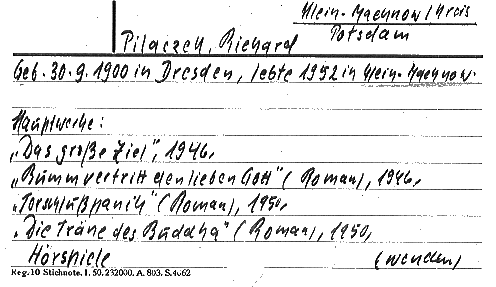 Klein-Machnow/Kreis
Potsdam
Pilaczek, Richard
Geb. 30.9.1900 in Dresden, lebte 1952 in Klein-Machnow.
Hauptwerke:
„Das große Ziel", 1946,
„Bumm vertritt den lieben Gott" (Roman), 1946,
„Torschlußpanik" (Roman), 1950,
„Die Träne des Buddha" (Roman), 1950,
Hörspiele (wenden)
Reg. 10 Stichnote. I. 50. 232000. A. 803. S. 4662